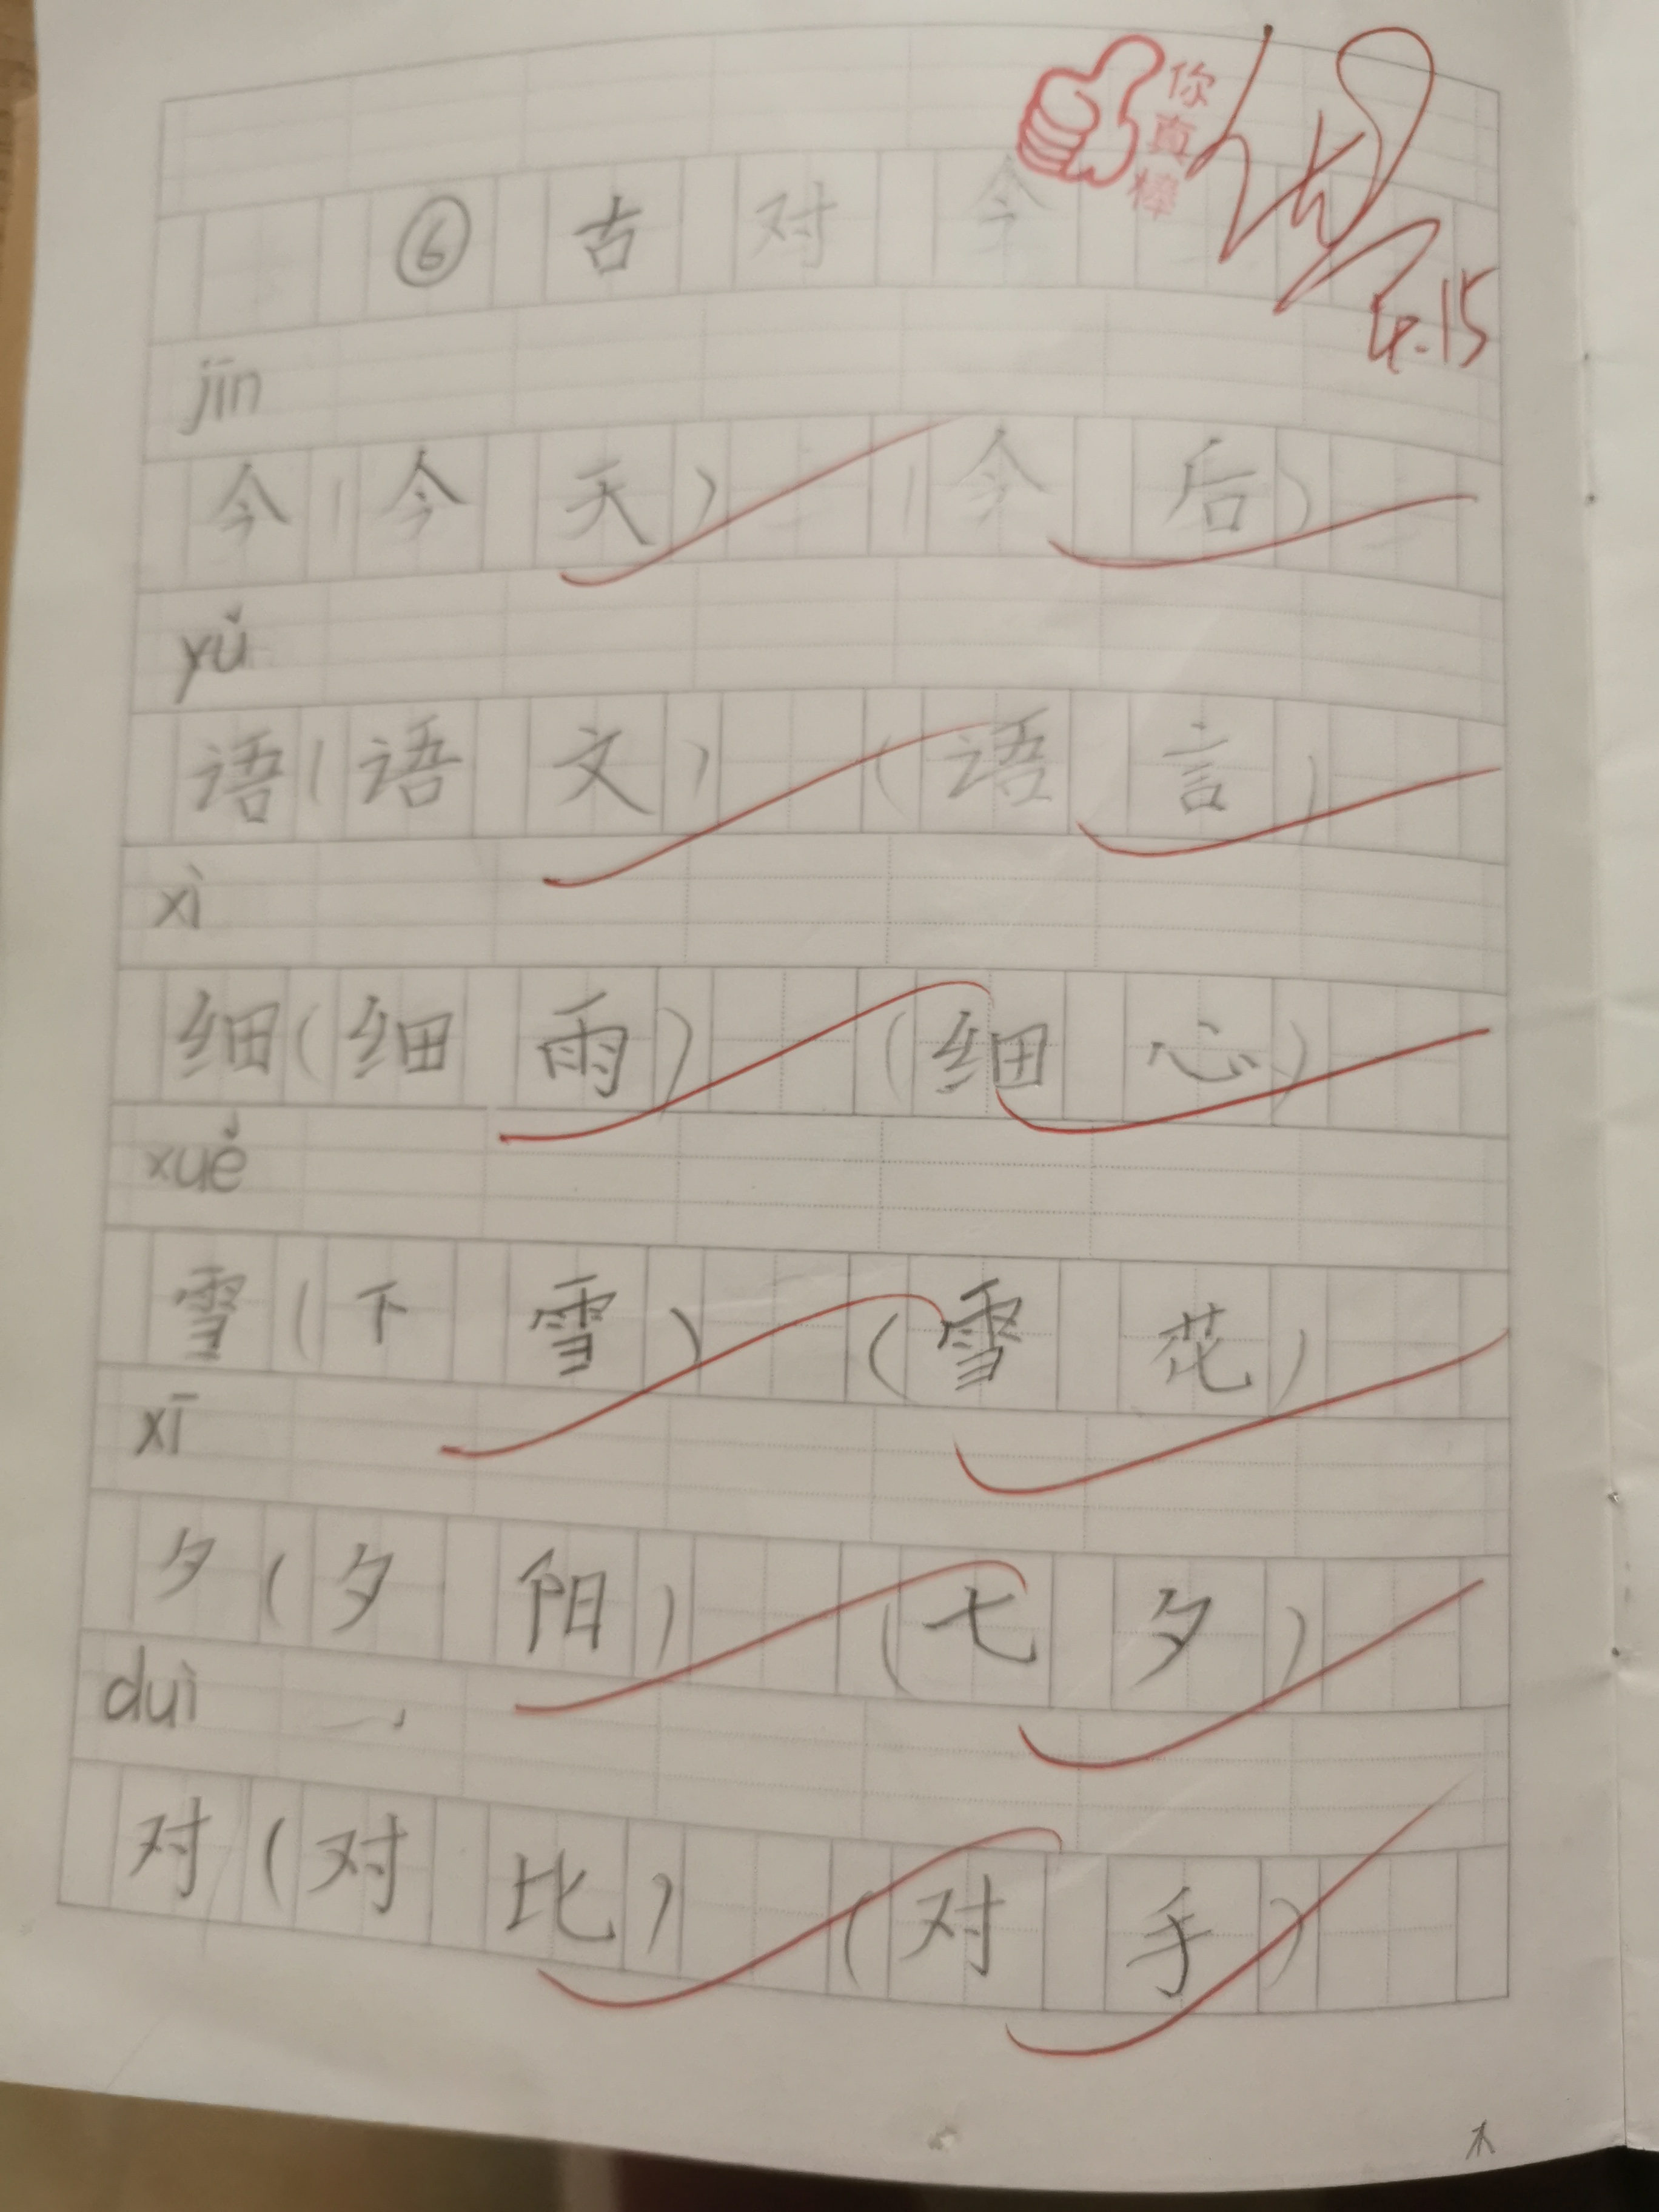 你真棒
优
4.15
⑥古对今
jīn
今(今天) (今后)
yǔ
语(语文) (语言)
xì
细(细雨) (细心)
xuě
雪(下雪) (雪花)
xī
夕(夕阳) (七夕)
duì
对(对比) (对手)
木